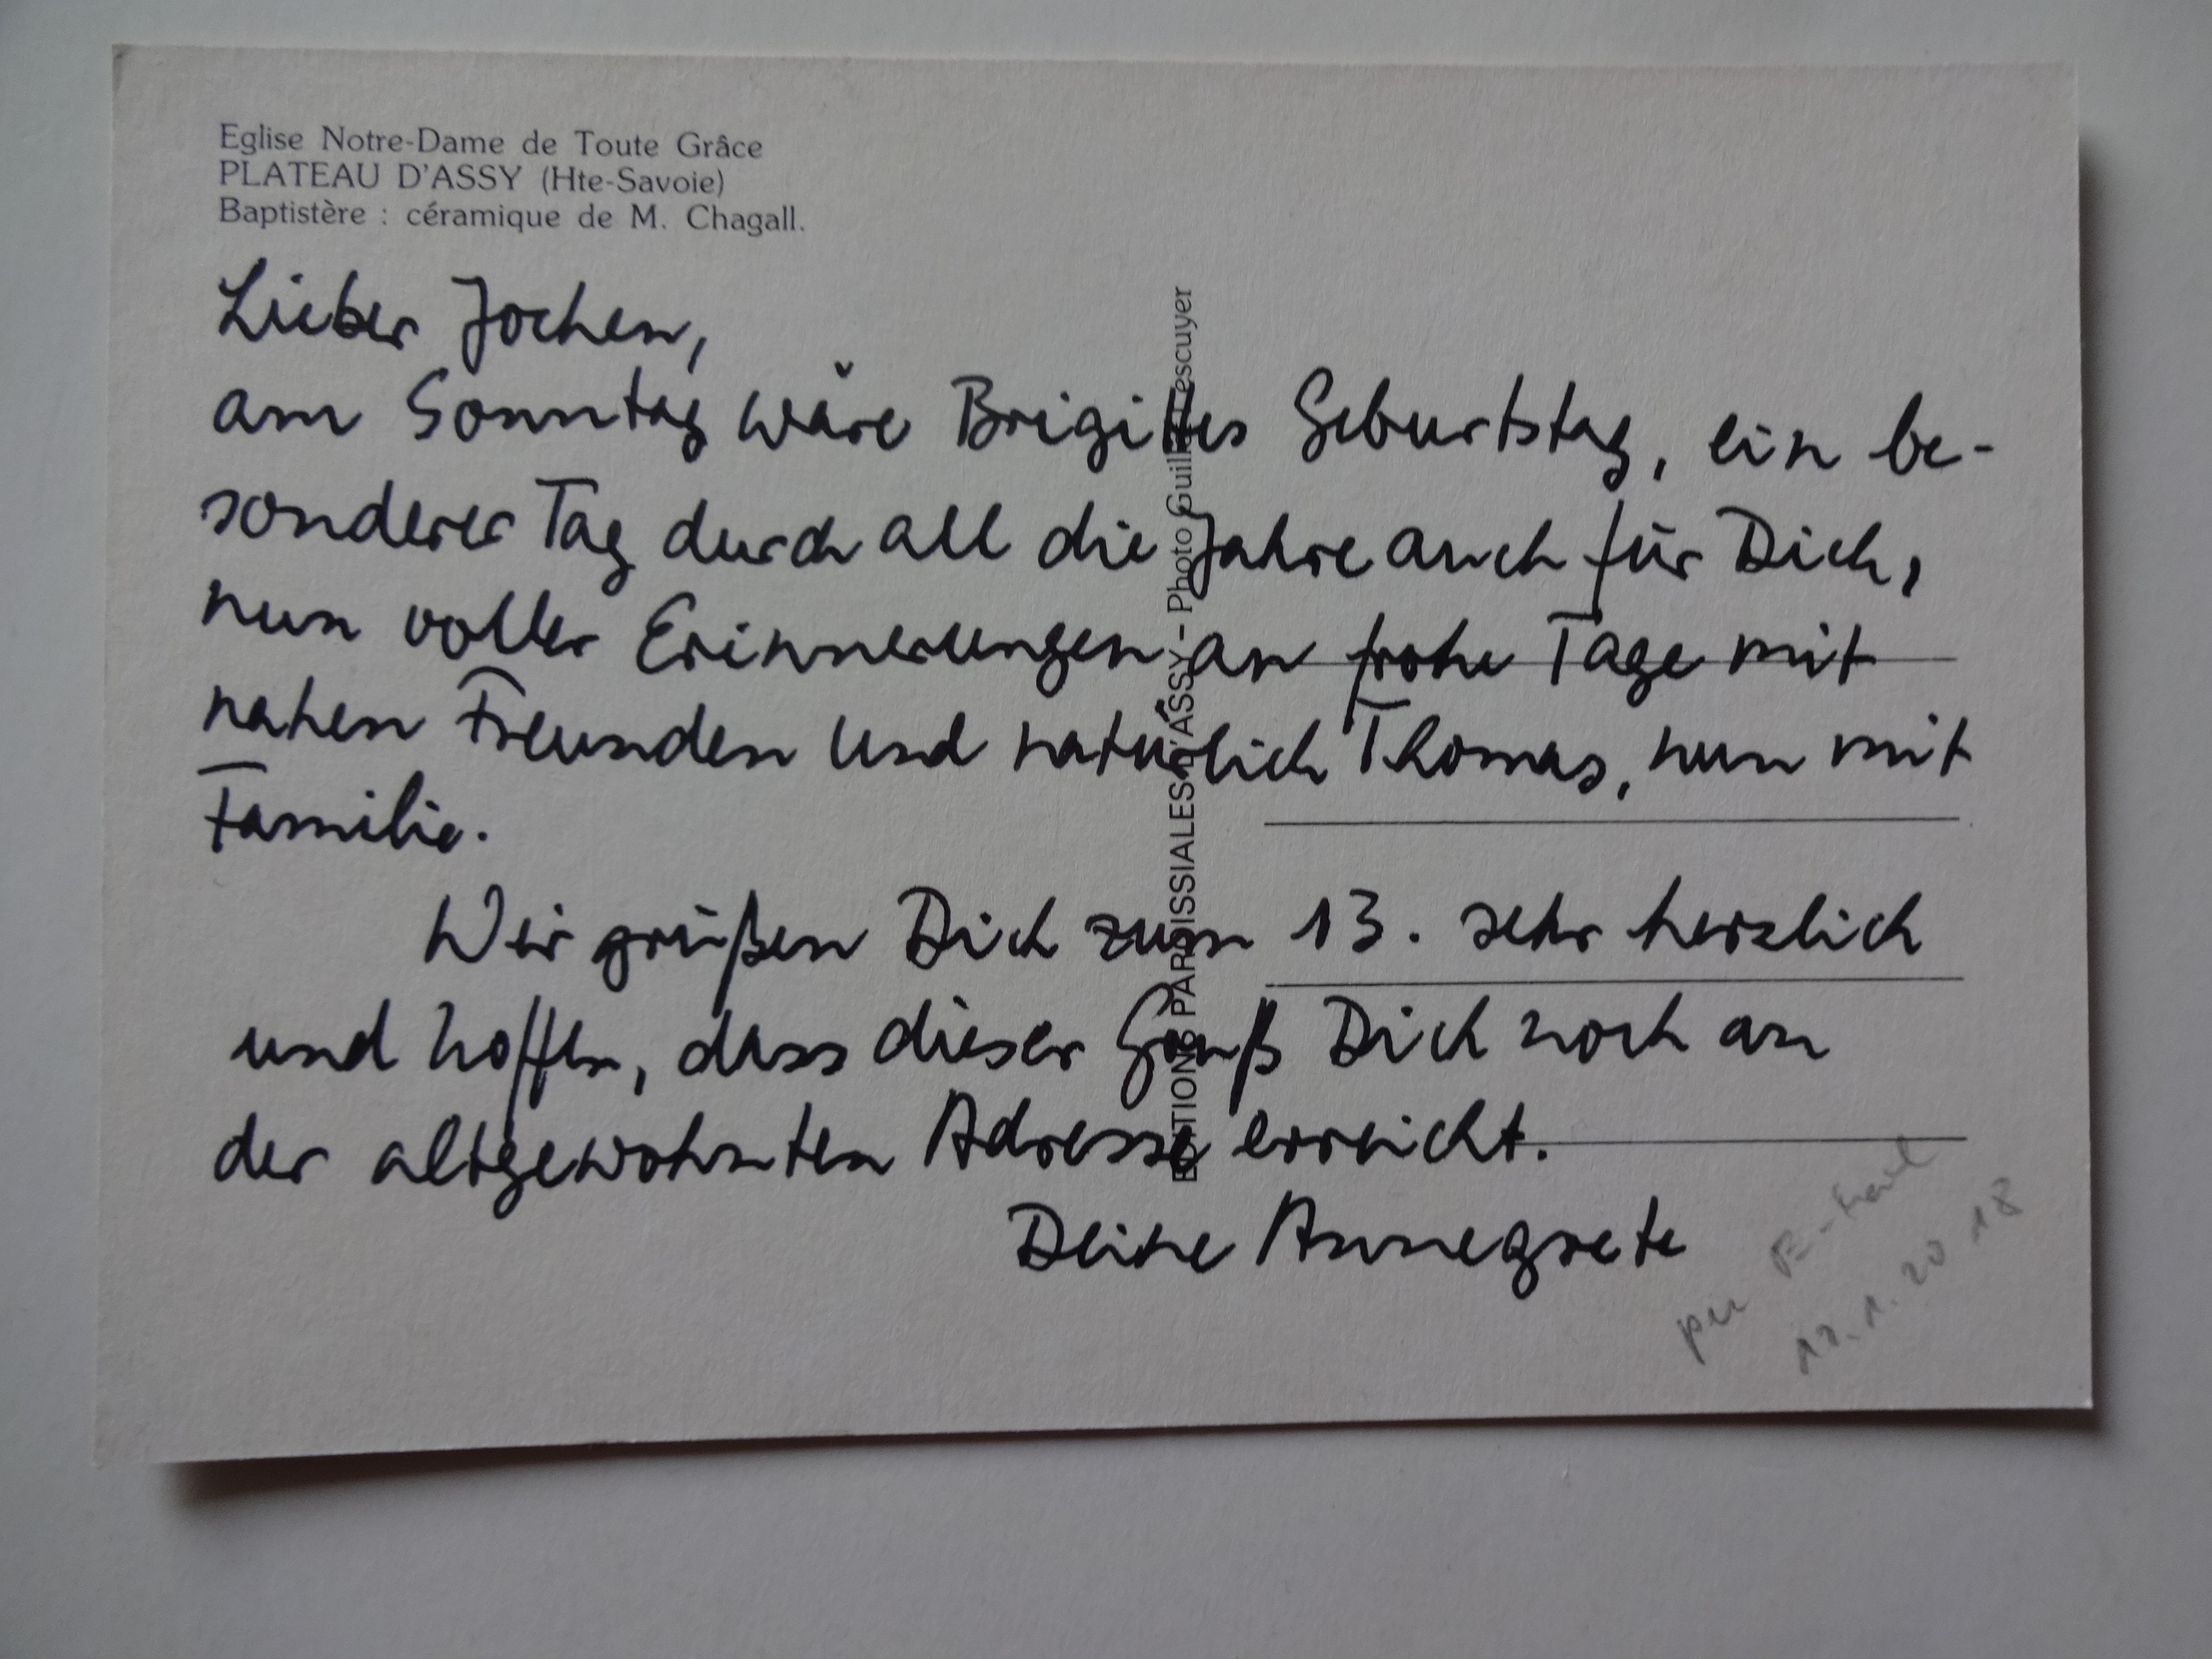 Eglise Notre-Dame de Toute Grâce
PLATEAU D'ASSY (Hte-Savoie)
Baptistère : céramique de M. Chagall.
Lieber Jochen,
am Sonntag wäre Brigittes Geburtstag, ein be-
sonderer Tag durch all die Jahre auch für Dich,
nun voller Erinnerungen an frohe Tage mit
nahen Freunden und natürlich Thomas, nun mit
Familie.
Wir grüßen Dich zum 13. sehr herzlich
und hoffen, dass dieser Gruß Dich noch an
der altgewohnten Adresse erreicht.
Deine Annegrete
EDITIONS PAROISSIALES D'ASSY - Photo
per E-Mail
1. 2018